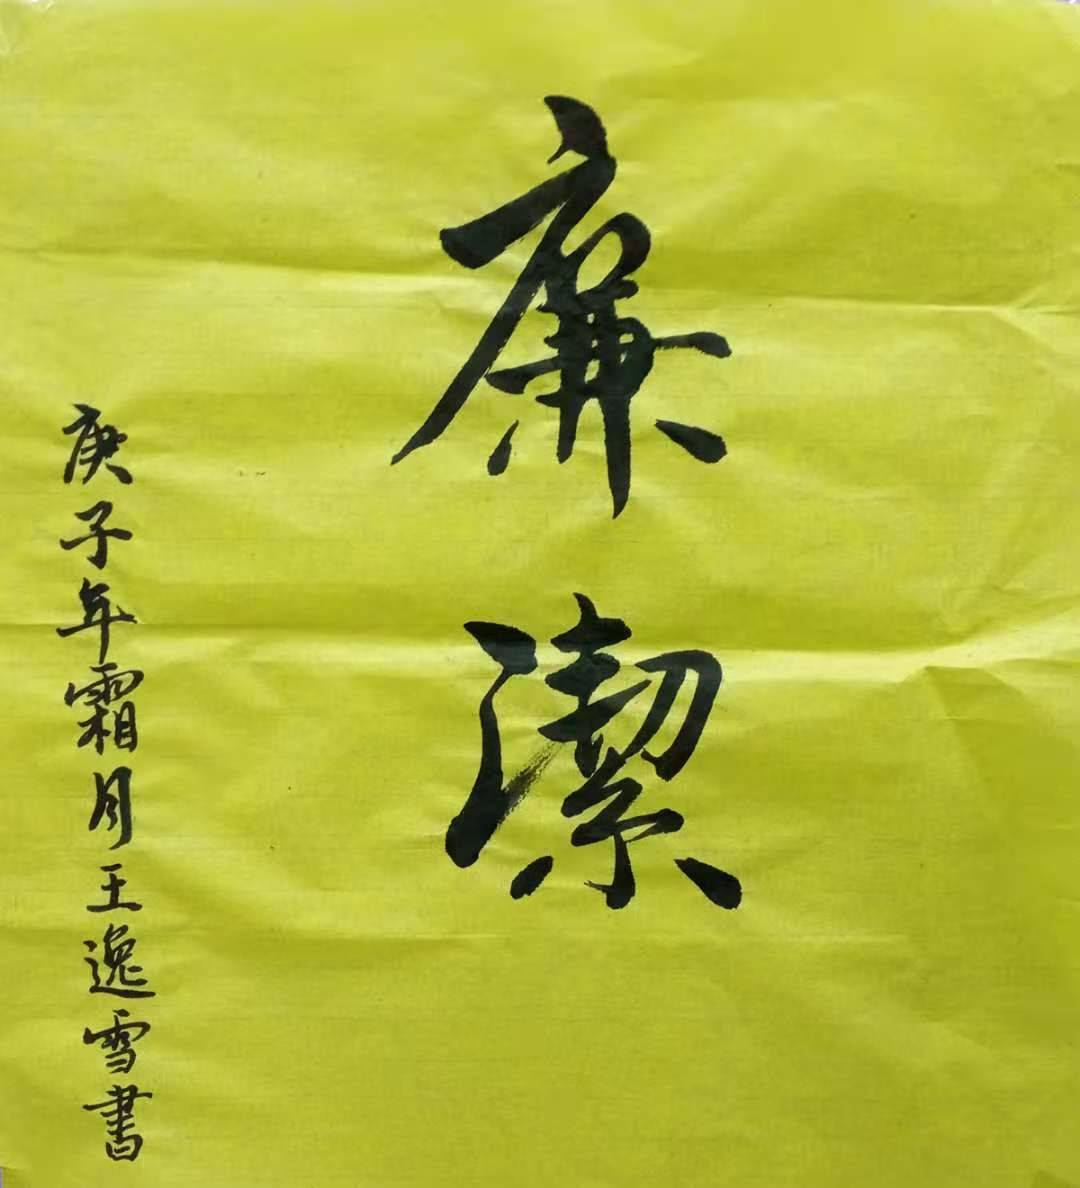 廉潔
庚子年霜月王逸雪書